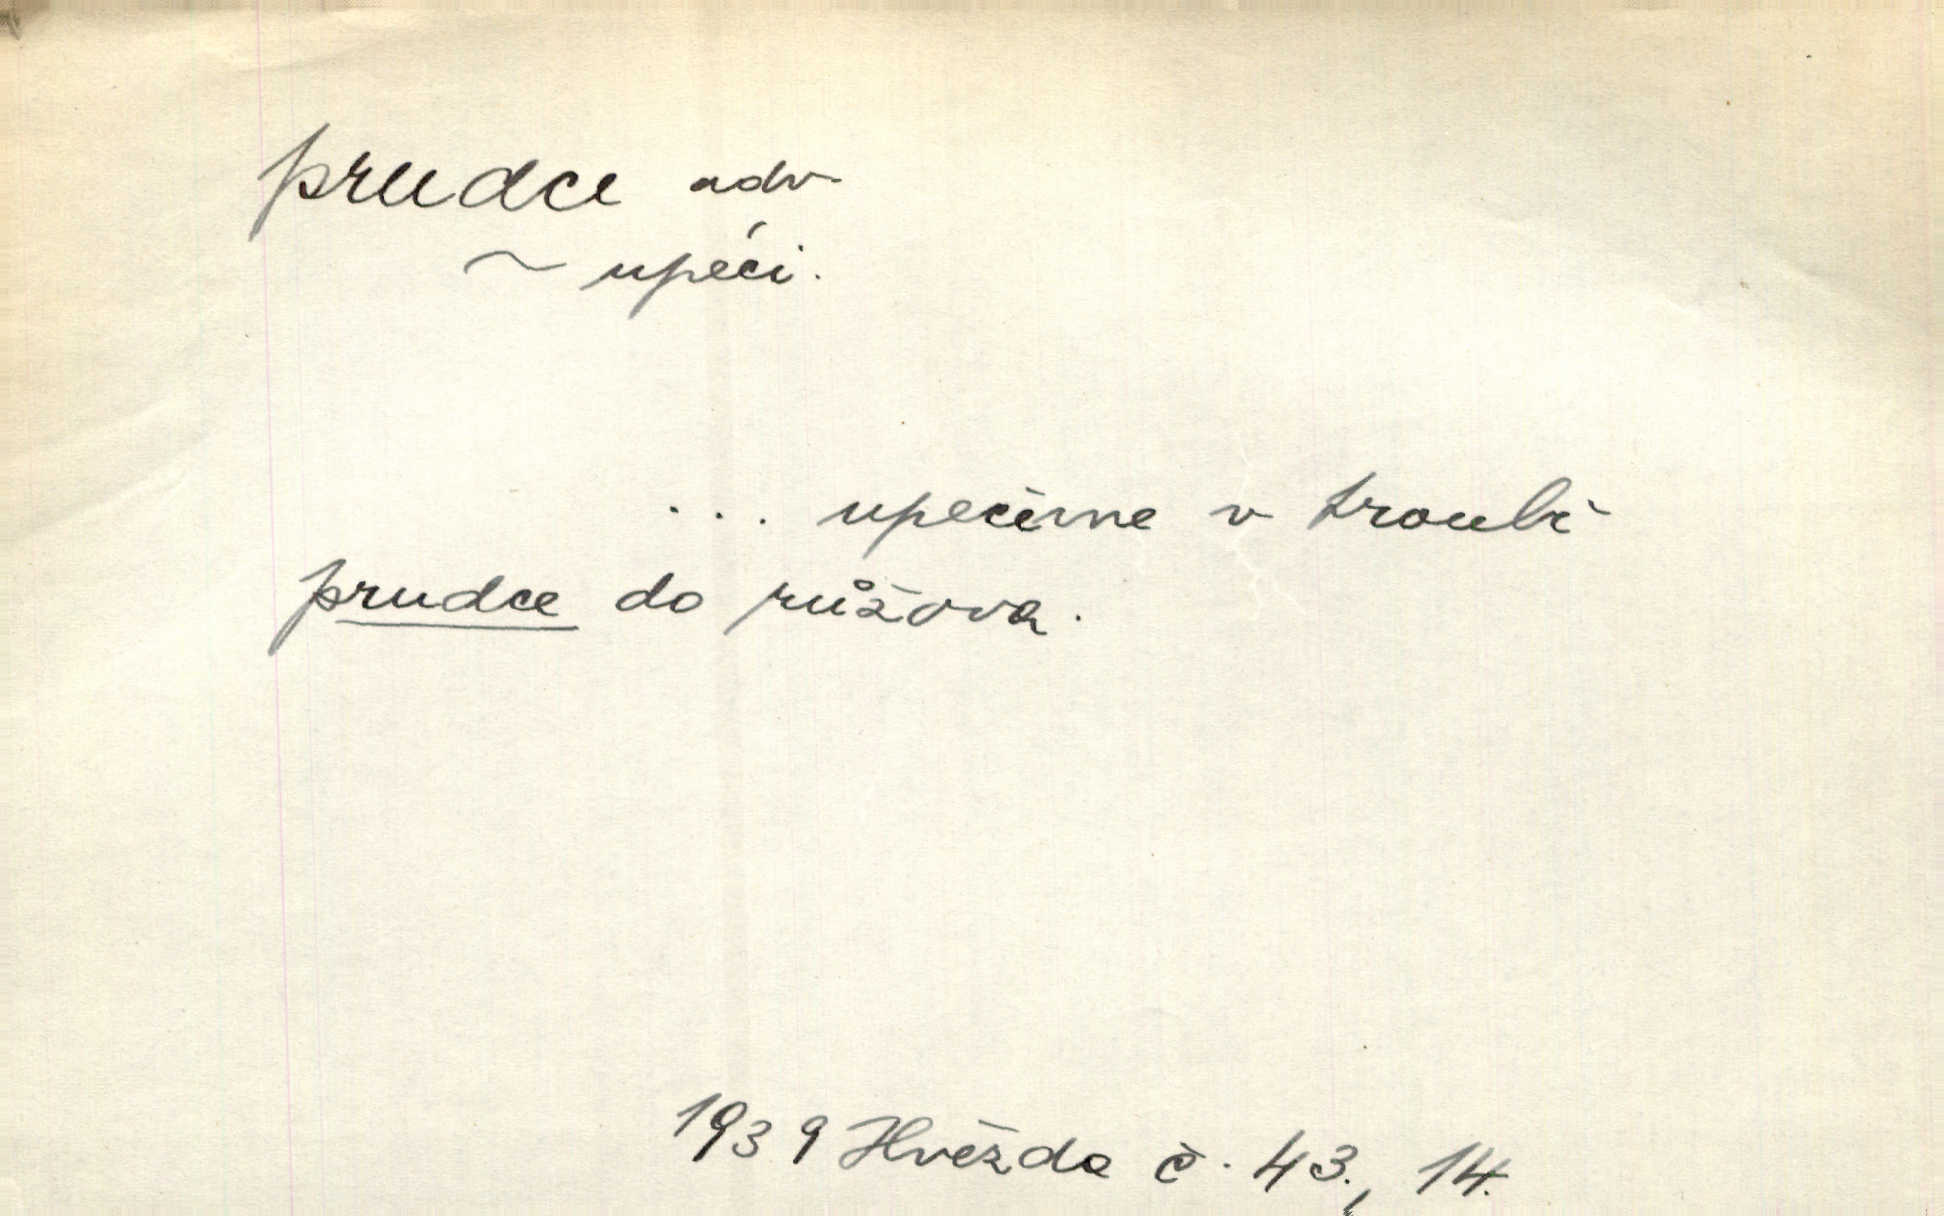 prudce adv.
~ upéci.
... upečeme v troubě
prudce do růžova.
1939 Hvězda č. 43., 14.